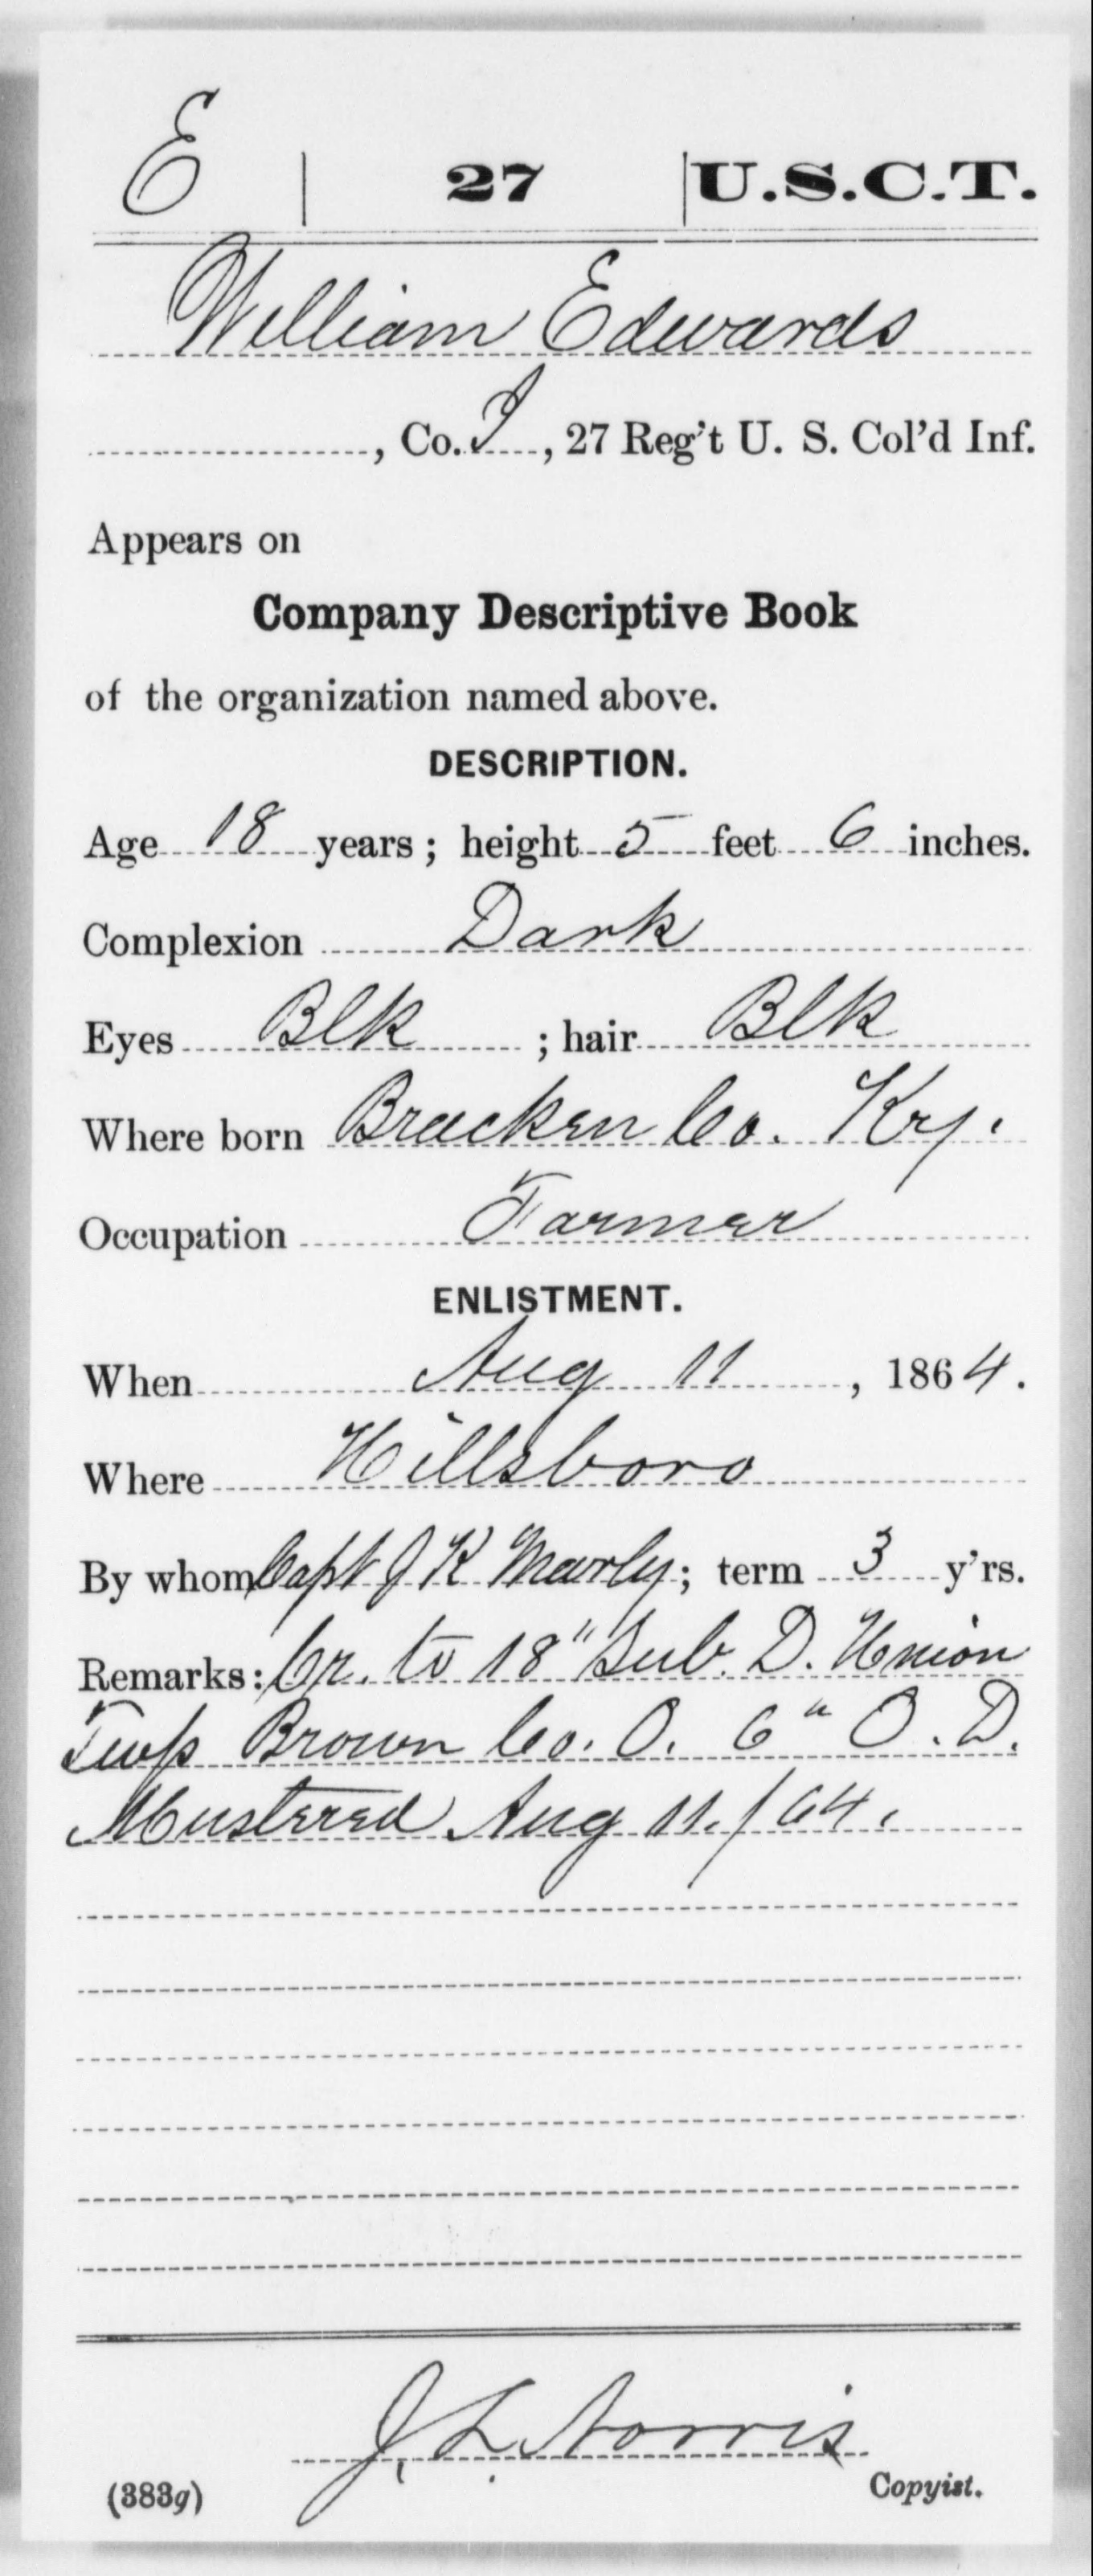 E | 27 | U.S.C.T.
William Edwards
, Co. I, 27 Reg't U. S. Col'd Inf.
Appears on
Company Descriptive Book
of the organization named above.
DESCRIPTION.
Age 18 years; height 5 feet 6 inches.
Complexion Dark
Eyes Blk ; hair Blk
Where born Bracken Co. Ky.
Occupation Farmer
ENLISTMENT.
When Aug 11, 1864.
Where Hillsboro
By whom Capt J K ; term 3 y'rs.
Remarks: Cr. to 18" Sub. D. Union
Twp Brown Co. O. 6" C. D.
Mustered Aug 11./64.
J. L. Norris
(383g) Copyist.